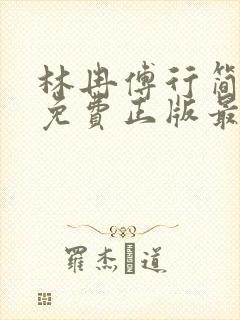 林冉傅行简
免费正版最
羅杰 道